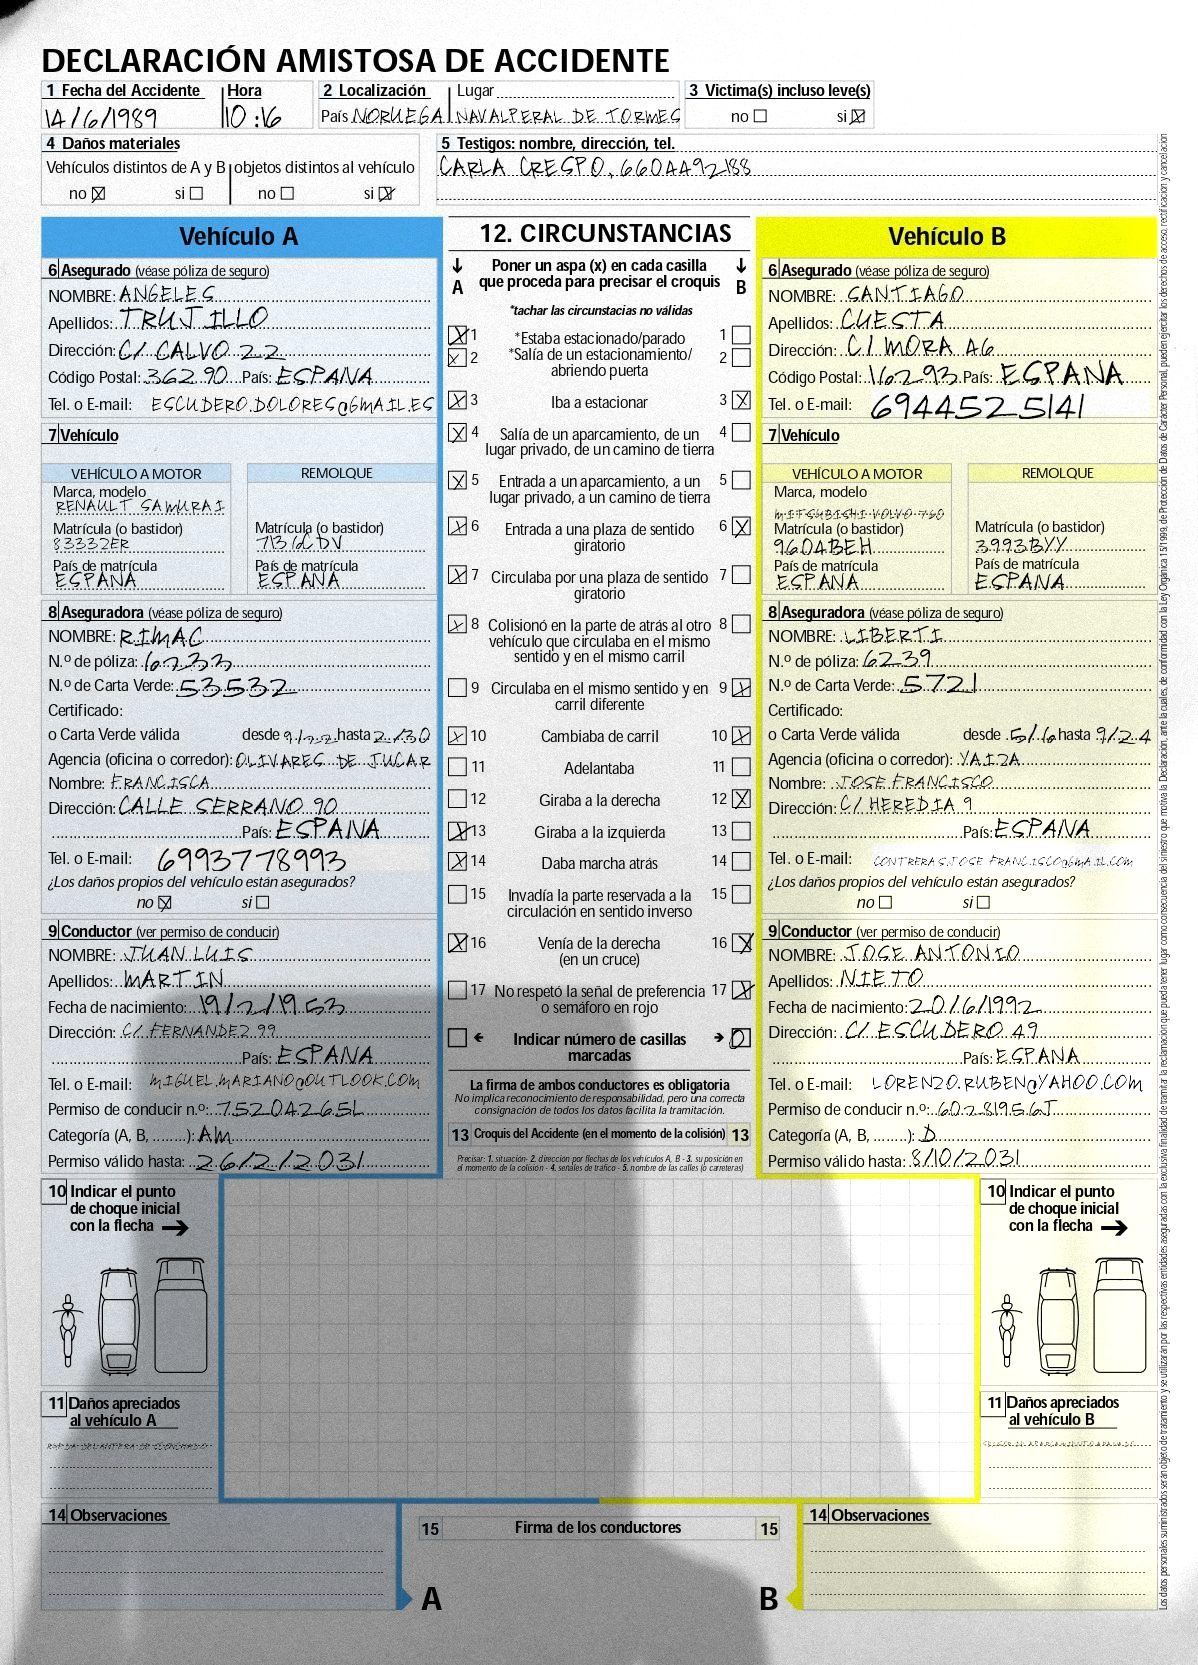 DECLARACIÓN AMISTOSA DE ACCIDENTE
1 Fecha del Accidente Hora 2 Localización Lugar 3 Victima(s) incluso leve(s)
14/6/1989 10:16 País NORUEGA NAVALPERAL DE TORMES no si
4 Daños materiales 5 Testigos: nombre, dirección, tel.
Vehículos distintos de A y B objetos distintos al vehículo CARLA CRESPO, 660449288
no si no si
Vehículo A
6 Asegurado (véase póliza de seguro)
NOMBRE: ANGELES
Apellidos: TRUJILLO
Dirección: C/ CALVO 22
Código Postal: 36290 País: ESPAÑA
Tel. o E-mail: ESCUDERO.DOLORES@GMAIL.ES
7 Vehículo
VEHÍCULO A MOTOR REMOLQUE
Marca, modelo
RENAULT SAMURAI
Matrícula (o bastidor) Matrícula (o bastidor)
83332ER 7136CDV
País de matrícula País de matrícula
ESPAÑA ESPAÑA
8 Aseguradora (véase póliza de seguro)
NOMBRE: RIMAC
N.º de póliza: 6233
N.º de Carta Verde: 53532
Certificado:
o Carta Verde válida desde hasta 2/30
Agencia (oficina o corredor): OLIVARES DE JUCAR
Nombre: FRANCISCA
Dirección: CALLE SERRANO 90
País: ESPAÑA
Tel. o E-mail: 6993778993
¿Los daños propios del vehículo están asegurados?
no si
9 Conductor (ver permiso de conducir)
NOMBRE: JUAN LUIS
Apellidos: MARTIN
Fecha de nacimiento: 19/2/1953
Dirección: C/ FERNANDEZ 99
País: ESPAÑA
Tel. o E-mail: MIGUEL.MARIANO@OUTLOOK.COM
Permiso de conducir n.º: 75204265L
Categoría (A, B, ........): AM
Permiso válido hasta: 26/2/2031
12. CIRCUNSTANCIAS
Poner un aspa (x) en cada casilla
A que proceda para precisar el croquis B
*tachar las circunstacias no válidas
1 *Estaba estacionado/parado 1
2 *Salía de un estacionamiento/ 2
abriendo puerta
3 Iba a estacionar 3
4 Salía de un aparcamiento, de un 4
lugar privado, de un camino de tierra
5 Entrada a un aparcamiento, a un 5
lugar privado, a un camino de tierra
6 Entrada a una plaza de sentido 6
giratorio
7 Circulaba por una plaza de sentido 7
giratorio
8 Colisionó en la parte de atrás al otro 8
vehículo que circulaba en el mismo
sentido y en el mismo carril
9 Circulaba en el mismo sentido y en 9
carril diferente
10 Cambiaba de carril 10
11 Adelantaba 11
12 Giraba a la derecha 12
13 Giraba a la izquierda 13
14 Daba marcha atrás 14
15 Invadía la parte reservada a la 15
circulación en sentido inverso
16 Venía de la derecha 16
(en un cruce)
17 No respetó la señal de preferencia 17
o semáforo en rojo
Indicar número de casillas 0
marcadas
La firma de ambos conductores es obligatoria
No implica reconocimiento de responsabilidad, pero una correcta
consignación de todos los datos facilita la tramitación.
13 Croquis del Accidente (en el momento de la colisión) 13
Precisar: 1. situación- 2. dirección por flechas de los vehículos A, B - 3. su posición en
el momento de la colisión - 4. señales de tráfico - 5. nombre de las calles (o carreteras)
Vehículo B
6 Asegurado (véase póliza de seguro)
NOMBRE: SANTIAGO
Apellidos: CUESTA
Dirección: C/ MORA 46
Código Postal: 16293 País: ESPAÑA
Tel. o E-mail: 6944525141
7 Vehículo
VEHÍCULO A MOTOR REMOLQUE
Marca, modelo
MITSUBISHI VOLVO 760
Matrícula (o bastidor) Matrícula (o bastidor)
9604BEH 3993BYY
País de matrícula País de matrícula
ESPAÑA ESPAÑA
8 Aseguradora (véase póliza de seguro)
NOMBRE: LIBERTI
N.º de póliza: 6239
N.º de Carta Verde: 5721
Certificado:
o Carta Verde válida desde 5/6 hasta 9/24
Agencia (oficina o corredor): YAIZA
Nombre: JOSE FRANCISCO
Dirección: C/ HEREDIA 9
País: ESPAÑA
Tel. o E-mail: CONTRERAS.JOSE FRANCISCO@GMAIL.COM
¿Los daños propios del vehículo están asegurados?
no si
9 Conductor (ver permiso de conducir)
NOMBRE: JOSE ANTONIO
Apellidos: NIETO
Fecha de nacimiento: 20/6/1992
Dirección: C/ ESCUDERO 49
País: ESPAÑA
Tel. o E-mail: LORENZO.RUBEN@YAHOO.COM
Permiso de conducir n.º: 60281956J
Categoría (A, B, ........): D
Permiso válido hasta: 8/10/2031
10 Indicar el punto
de choque inicial
con la flecha
11 Daños apreciados
al vehículo A
10 Indicar el punto
de choque inicial
con la flecha
11 Daños apreciados
al vehículo B
14 Observaciones
15 Firma de los conductores 15
A B
14 Observaciones
Los datos personales suministrados seran objeto de tratamiento y se utilizaran por las respectivas entidades aseguradas con la exclusiva finalidad de tramitar la reclamación que pueda tener lugar como consecuencia del siniestro que motiva la Declaración, ante la cuales, de conformidad con la Ley Orgánica 15/1999, de Protección de Datos de Carácter Personal, pueden ejercitar los derechos de acceso, rectificación y cancelación